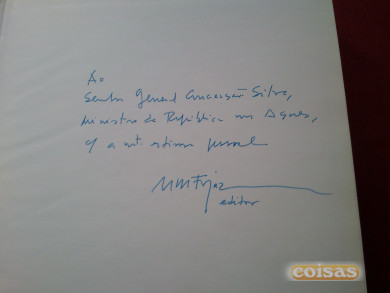 Ao
Senhor General Conceição Silva,
Ministro da República nos Açores,
c/ a mta estima pessoal
editor
coisas